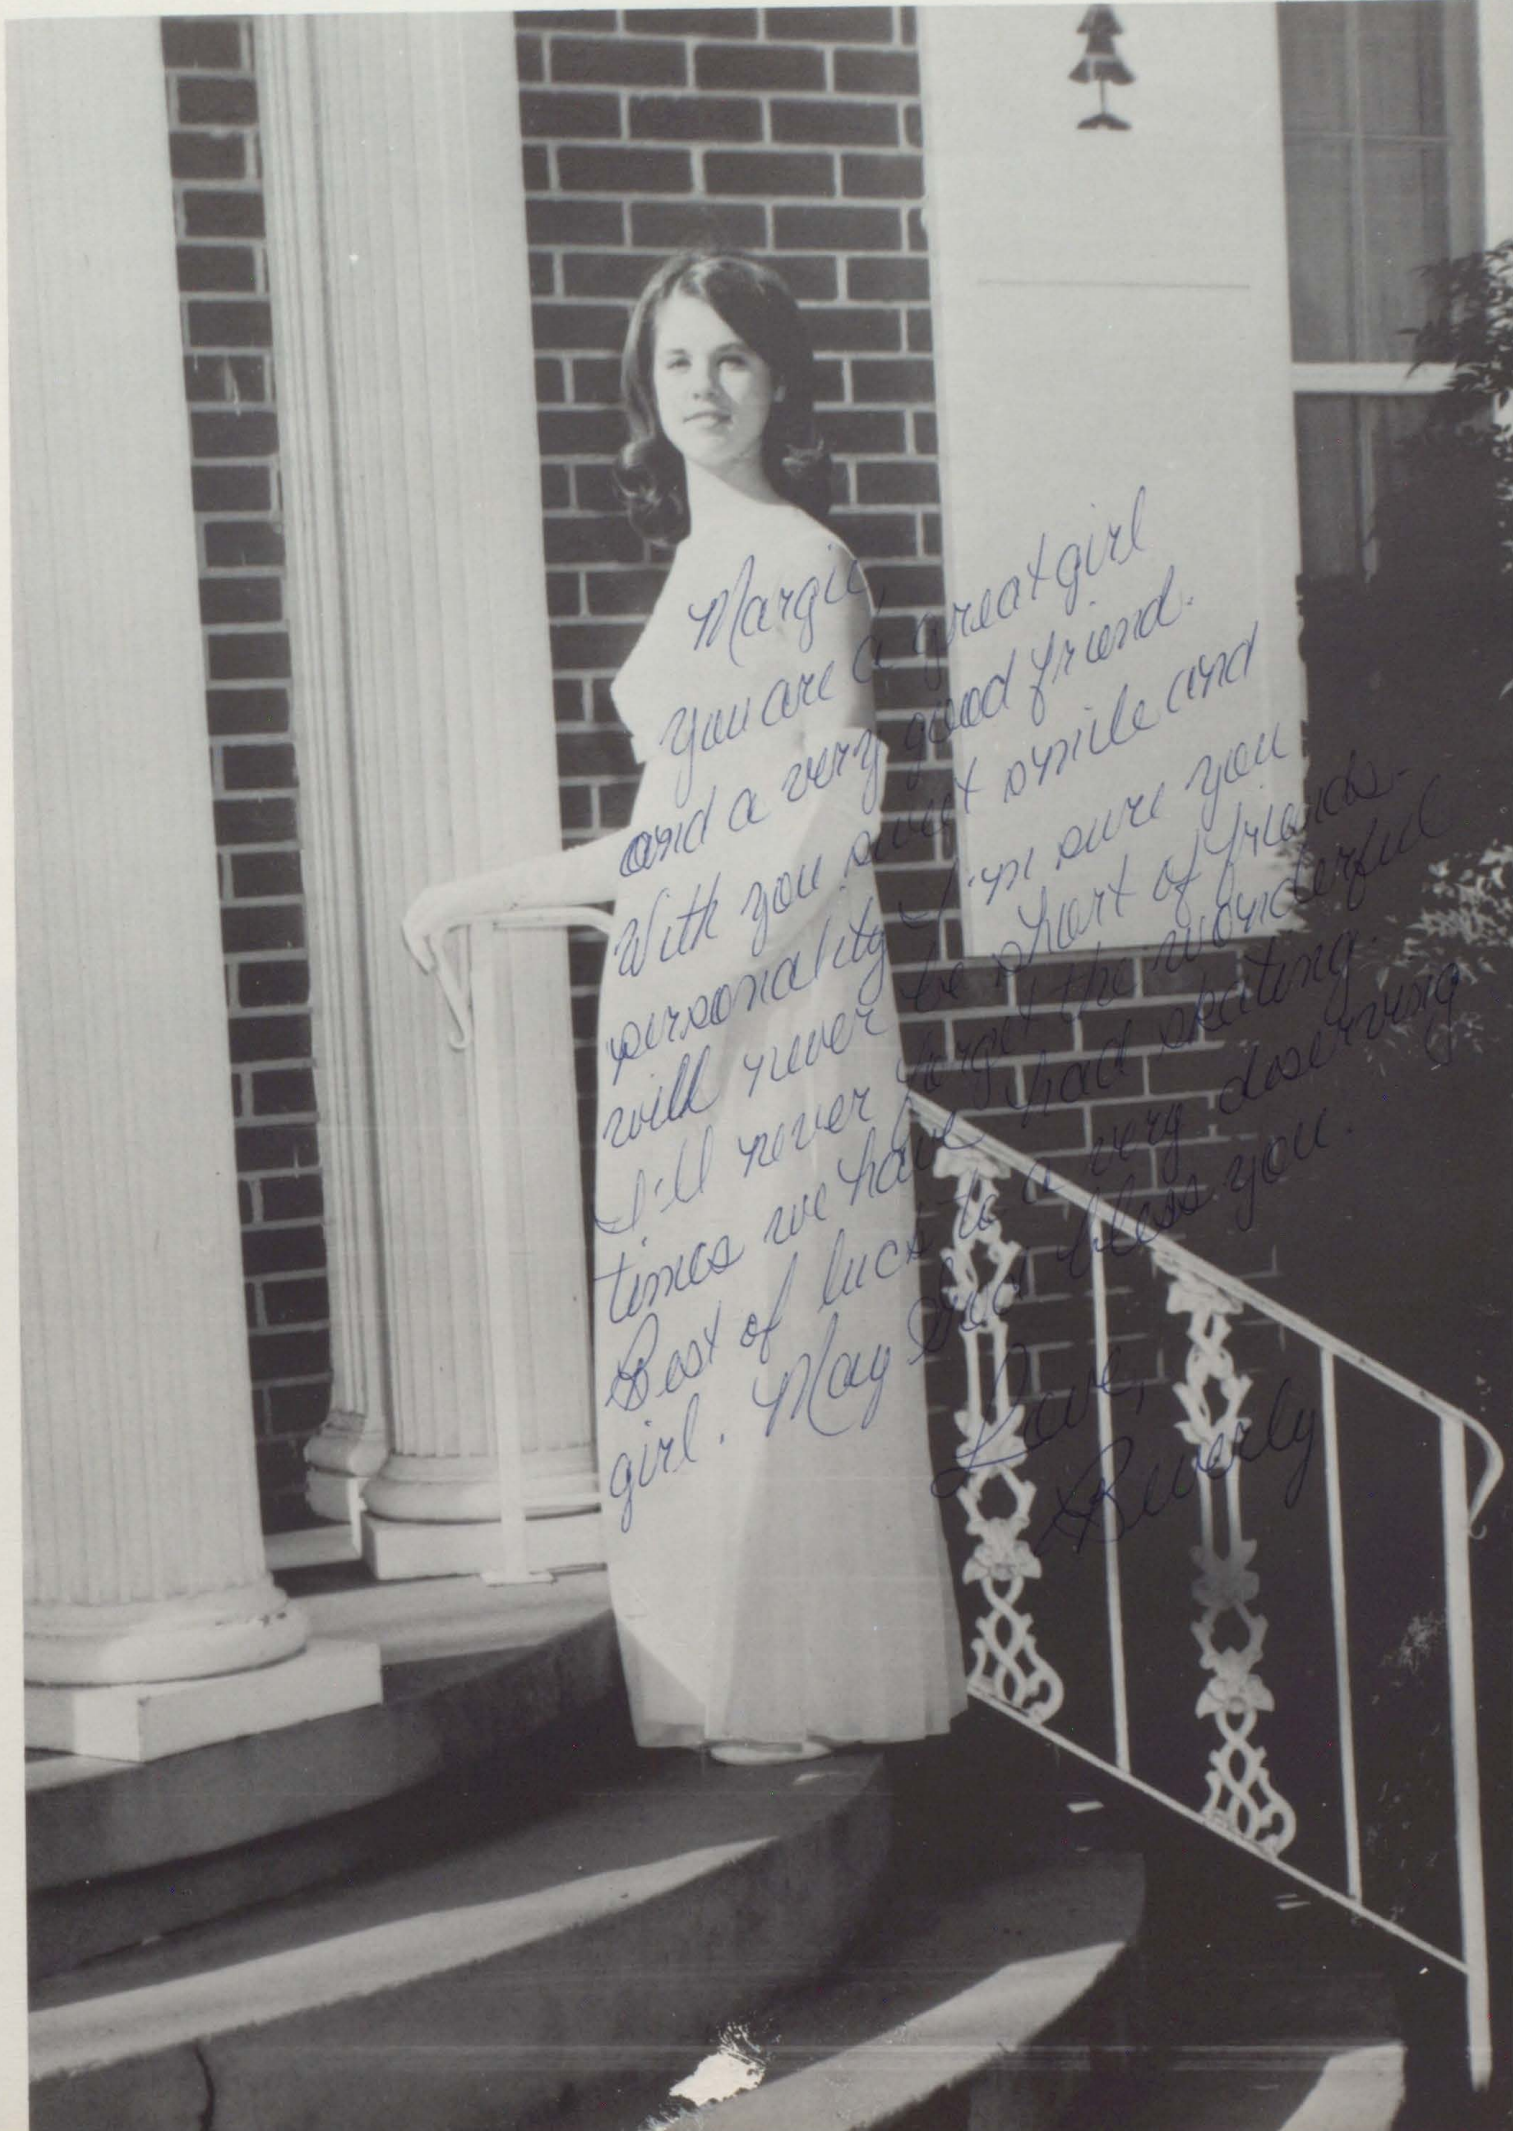 Margie,
You are a great girl
and a very good friend.
With you sweet smile and
personality I'm sure you
will never be short of friends.
I'll never forget the wonderful
times we have had skating.
Best of luck to a very deserving
girl. May God bless you.
Love,
Beverly